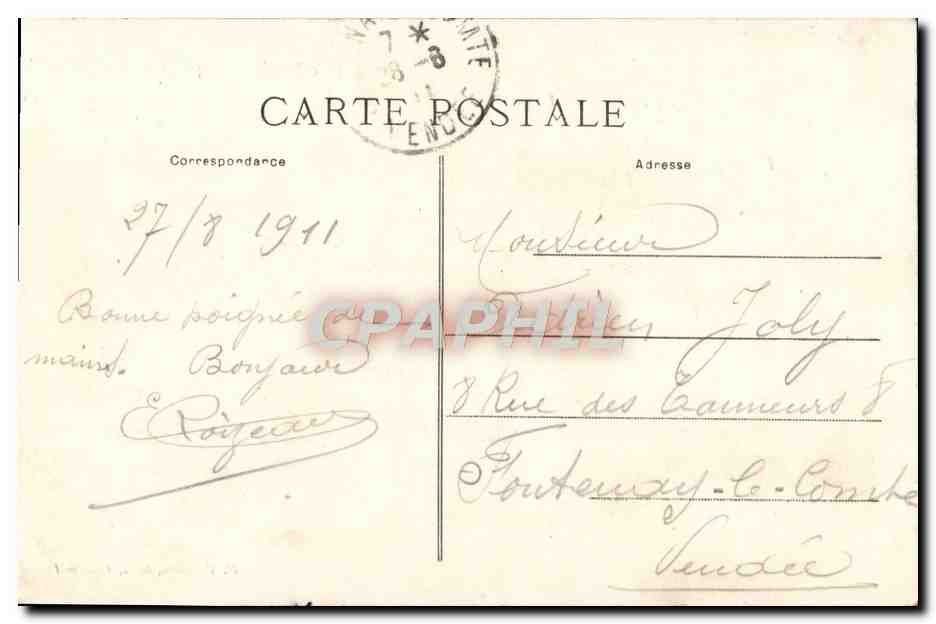 7 *
28 -8
11
VENDÉE
CARTE POSTALE
Correspondance
Adresse
27/8 1911
Bonne poignée de
mains. Bonjour
Monsieur
Joly
8 Rue des Tanneurs 8
Fontenay-le-Comte
Vendée
CPAPHIL